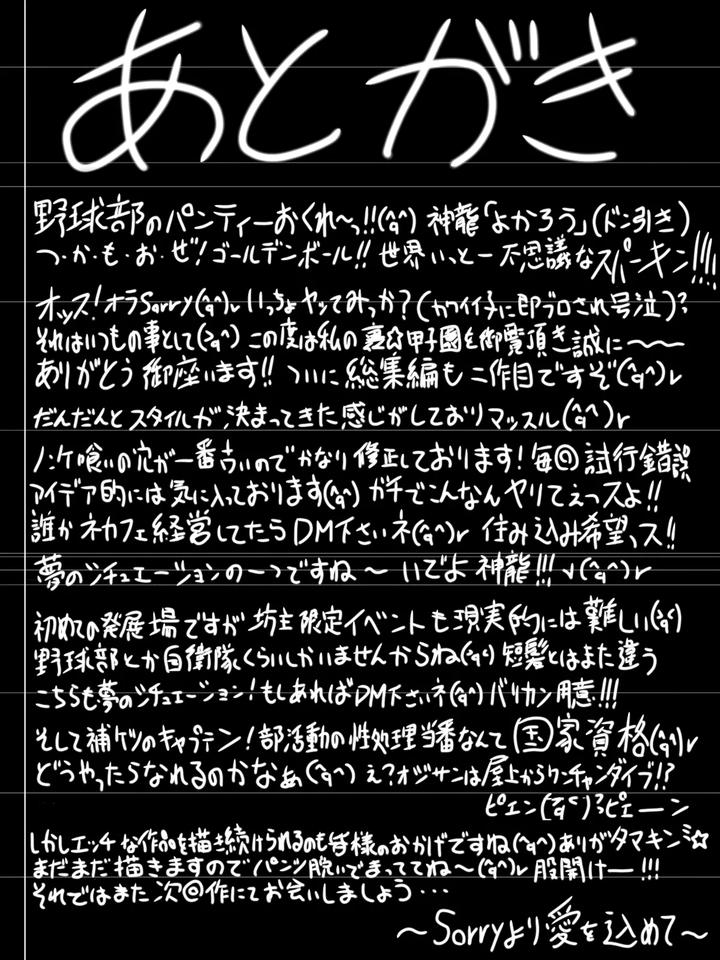 あとがき
野球部のパンティーおくれ〜っ!!(^q^) 神龍「よかろう」(ドン引き)
つ・か・も・お・ぜ!ゴールデンボール!! 世界いっと一不思議なスパーキン!!!!
オッス!オラSorry(^q^)r いっちょヤッてみっか?(カワイイ子に即ブロされ号泣)?
それはいつもの事として(>q^) この度は私の裏☆甲子園を御覧頂き誠に〜〜
ありがとう御座います!! ついに総集編も二作目ですぞ(^q^)r
だんだんとスタイルが決まってきた感じがしておりマッスル(^q^)r
ノンケ喰いの穴が一番古いのでかなり修正しております!毎回試行錯誤
アイデア的には気に入っております(^q^) ガチでこんなんヤリてえっスよ!!
誰かネカフェ経営してたらDM下さいネ(^q^)r 住み込み希望っス!!
夢のシチュエーションの一つですね〜 いでよ神龍!!! v(^q^)r
初めての発展場ですが坊主限定イベントも現実的には難しい(^q^)
野球部とか自衛隊くらいしかいませんからね(^q^) 短髪とはまた違う
こちらも夢のシチュエーション!もしあればDM下さいネ(^q^) バリカン用意!!!
そして補ケツのキャプテン!部活動の性処理当番なんて国家資格(^q^)r
どうやったらなれるのかなぁ(^q^) え?オジサンは屋上からワンチャンダイブ!?
ピエン(>q<)?ピエーン
しかしエッチな作品を描き続けられるのも皆様のおかげですね(^q^)ありがタマキン☆
まだまだ描きますのでパンツ脱いでまっててね〜(^q^)r 股開けー!!!
それではまた次回作にてお会いしましょう・・・
〜Sorryより愛を込めて〜